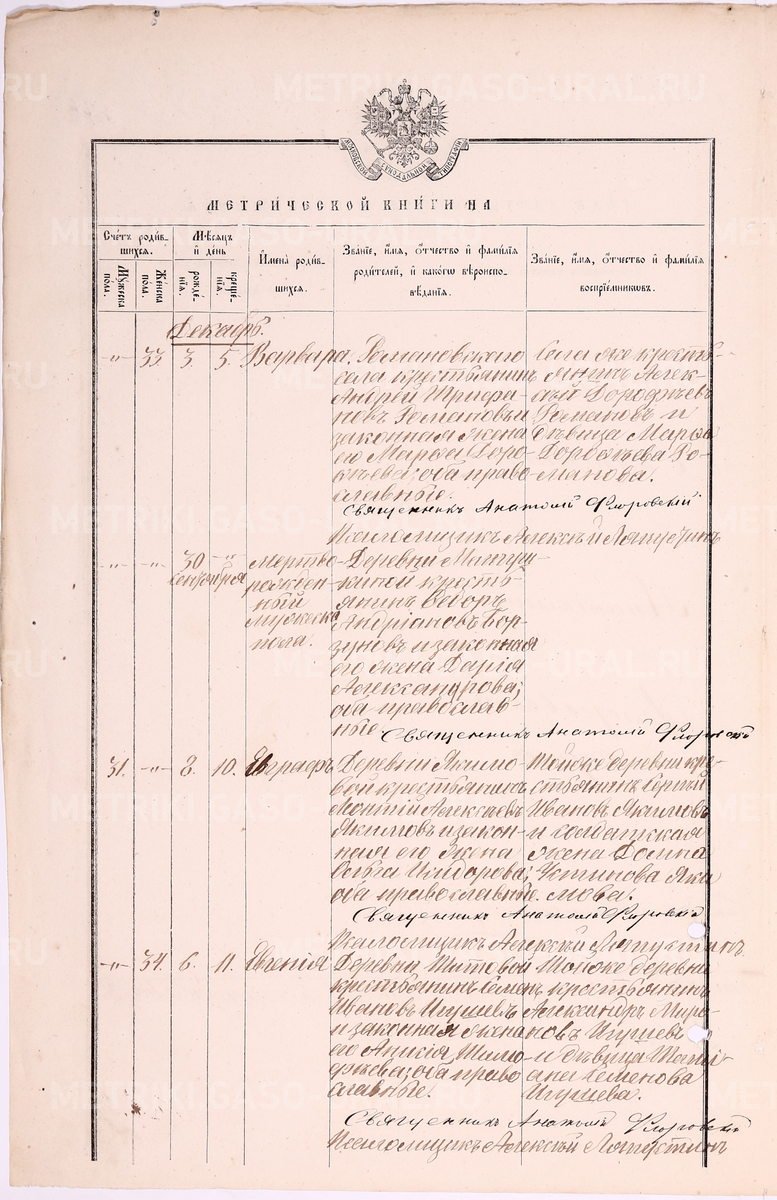 МЕТРИЧЕСКОЙ КНИГИ НА
Счетъ родив-
шихся.
Мужеска пола.
Женска пола.
Мѣсяцъ
и день
рожде-
нія.
креще-
нія.
Имена родив-
шихся.
Званіе, имя, отчество и фамилія
родителей, и какого вѣроиспо-
вѣданія.
Званіе, имя, отчество и фамилія
воспріемниковъ.
Декабрь.
-"- 33. 3. 5. Варвара.
Романовскаго
села крестьянинъ
Андрей Трифа-
новъ Романовъ и
законная жена
его Марѳа
ѳѣева; оба право-
славные.
Села же кресть-
янинъ Алек-
сѣй Дороѳѣевъ
Романовъ и
дѣвица Марѳа
Ро-
манова.
Священникъ Анатолій Флоровскій
Псаломщикъ Алексѣй
-"- -"- 30 -"-
сентября
Мертво-
рожден-
ный
мужеска
пола.
Деревни
кресть-
янинъ Ѳеодоръ
Андріановъ Бор-
зуновъ и законная
его жена Дарія
Александрова;
оба православ-
ные.
Священникъ Анатолій Флоровскій
31. -"- 8. 10. Евграфъ.
Деревни Якимо-
вой крестьянинъ
Алексѣевъ
Якимовъ и закон-
ная его жена
Ольга Исидорова;
оба православные.
Тойже деревни кре-
стьянинъ Сергій
Ивановъ Якимовъ
и солдатская
жена Домна
Устинова Яки-
мова.
Священникъ Анатолій Флоровскій
Псаломщикъ Алексѣй
-"- 34. 6. 11. Евгенія
Деревни Титовой
крестьянинъ Семенъ
Ивановъ Игушевъ
и законная жена
его Анисія Тимо-
фѣева; оба право-
славные.
Тойже деревни
крестьянинъ
Александръ Миро-
новъ Игушевъ
и дѣвица Тати-
ана Семенова
Игушева.
Священникъ Анатолій Флоровскій
Псаломщикъ Алексѣй
METRIKI.GASO-URAL.RU